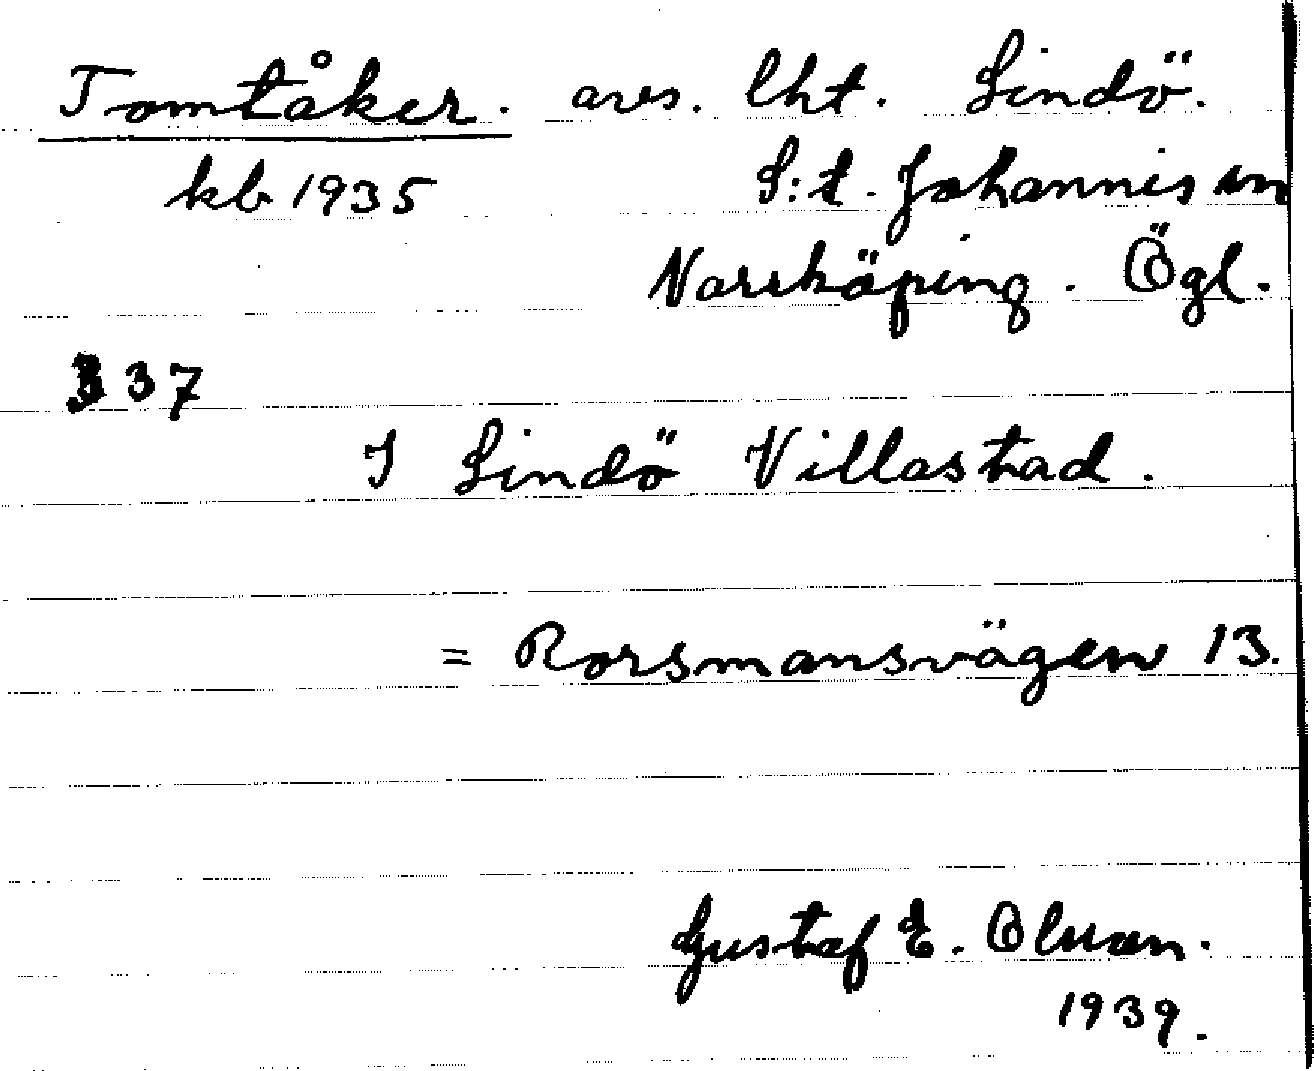 Tomtåker. avs. lht. Lindö.
kb 1935 S:t. Johannis sn
Norrköping. Ögl.
337
I Lindö Villastad.
= Rorsmansvägen 13.
Gustaf E. Olsson.
1939.